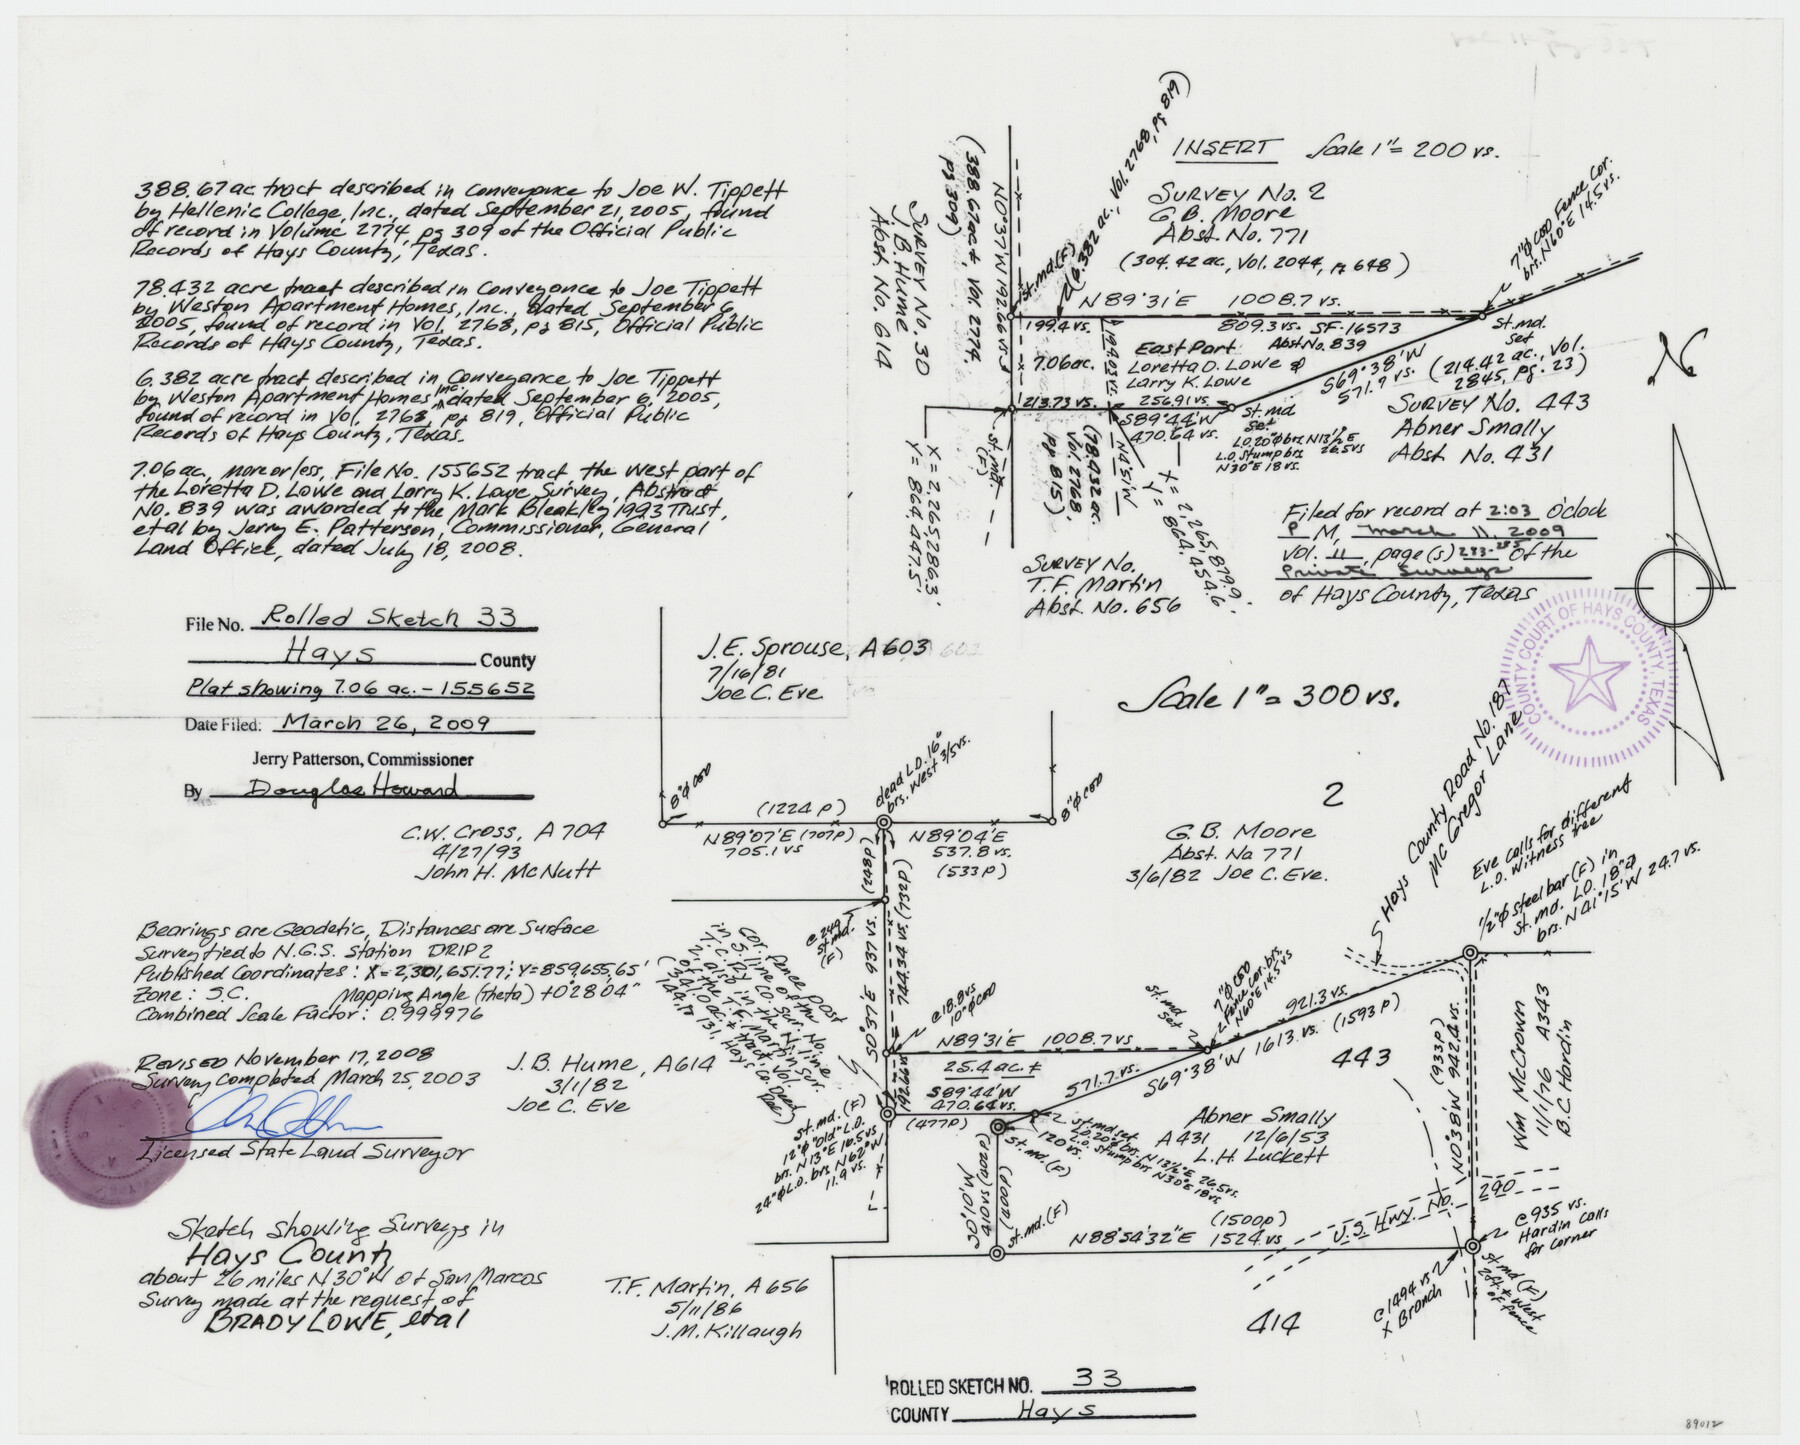 388.67 ac tract described in conveyance to Joe W. Tippett
by Hellenic College, Inc., dated September 21, 2005, found
of record in Volume 2774, pg 309 of the Official Public
Records of Hays County, Texas.
78.432 acre tract described in Conveyance to Joe Tippett
by Weston Apartment Homes, Inc., dated September 6,
2005, found of record in Vol. 2768, pg 815, Official Public
Records of Hays County, Texas.
6.382 acre tract described in Conveyance to Joe Tippett
by Weston Apartment Homes Inc. dated September 6, 2005,
found of record in Vol. 2768, pg 819, Official Public
Records of Hays County, Texas.
7.06 ac, more or less, File No. 155652 tract the west part of
the Loretta D. Lowe and Larry K. Lowe Survey, Abstract
No. 839 was awarded to the Mark Bleakley 1993 Trust,
et al by Jerry E. Patterson, Commissioner, General
Land Office, dated July 18, 2008.
File No. Rolled Sketch 33
Hays County
Plat showing 7.06 ac. - 155652
Date Filed: March 26, 2009
Jerry Patterson, Commissioner
By Douglas Howard
INSERT Scale 1" = 200 vs.
SURVEY No. 2
G.B. Moore
Abst. No. 771
(304.42 ac, Vol. 2044, pg 648)
(6.382 ac., Vol. 2768, pg 819)
(388.67ac±, Vol. 2774,
pg 309)
SURVEY No. 30
J.B. Hume
Abst No. 614
N0°37'W 192.66 vs.
st.md.(F)
N89°31'E 1008.7 vs.
199.4 vs.
809.3 vs. SF-16573
7"φ CED Fence Cor.
brs. N60°E 14.5 vs.
st. md.
set
7.06ac.
194.03 vs.
East Part Abst No. 839
Loretta D. Lowe &
Larry K. Lowe
S69°38'W
571.7 vs.
(214.42 ac., Vol.
2845, pg. 23)
SURVEY No. 443
Abner Smally
Abst No. 431
213.73 vs.
256.91 vs.
S89°44'W
470.64 vs.
st. md
set
L.O. 20"φ brs N13½°E
26.5vs
L.O. Stump brs
N30°E 18 vs.
st. md.
(F)
(78.432 ac.
Vol. 2768
pg 815)
X = 2,265,286.3'
Y = 864,447.5'
X = 2,265,879.9'
Y = 864,454.6'
SURVEY No.
T.F. Martin
Abst. No. 656
Filed for record at 2:03 O'clock
P M, March 11, 2009
Vol. 11 page(s) 283-285 of the
Private Surveys
of Hays County, Texas
COUNTY COURT OF HAYS COUNTY, TEXAS
N
J.E. Sprouse, A 603
7/16/81
Joe C. Eve
Scale 1" = 300 vs.
8"φ CED
dead L.O. 16"
brs. West 3/5 vs.
8"φ CED
(1224 P)
N89°07'E (707P)
705.1 vs
N89°04'E
537.8 vs.
(533P)
C.W. Cross, A 704
4/27/93
John H. McNutt
2
G.B. Moore
Abst. No 771
3/6/82 Joe C. Eve.
Hays County Road No. 187
McGregor Lane
Eve calls for different
L.O. Witness tree
½"φ steel bar (F) in
st. md. L.O. 18"φ
brs. N41°15'W 24.7 vs.
Bearings are Geodetic, Distances are Surface
Survey tied to N.G.S. Station DRIP 2
Published Coordinates: X=2,301,651.77'; Y=859,655.65'
Zone: S.C. Mapping Angle (theta) +0°28'04"
Combined Scale Factor: 0.999976
REVISED November 17, 2008
Survey Completed March 25, 2003
Licensed State Land Surveyor
@ 249
st. md.
(F)
S0°37'E 937 vs.
Cor. Fence post
@ 18.8 vs.
10"φ CED
N89°31'E 1008.7 vs
25.4 ac.±
S89°44'W
470.64 vs.
(477P)
192.66 vs
st. md
set
7"φ CED
Fence Cor. brs.
N60°E 14.5 vs
921.3 vs.
571.7 vs.
S69°38'W 1613. vs. (1593 P)
443
(933P)
N0°38'W 942.4 vs.
Wm McCrown
11/1/76 A343
B.C. Hardin
J.B. Hume, A614
3/1/82
Joe C. Eve
st. md. (F)
12"φ "Old" L.O.
brs. N13°E 16.5 vs
24"φ L.O. brs N62°W
11.9 vs.
st. md set
L.O. 20"φ brs. N13½°E 26.5 vs.
L.O. Stump brs N30°E 18 vs.
120 vs.
st. md. (F)
Abner Smally
A 431 12/6/53
L.H. Luckett
(400P)
st. md. (F)
(1500P)
N88°54'32"E 1524. vs
U.S. Hwy. No. 290
@ 935 vs.
Hardin calls
for corner
st md (F)
2ft ± West
of fence
@ 1494 vs
X Branch
Sketch showing Surveys in
Hays County
about 26 miles N30°W of San Marcos
Survey made at the request of
BRADY LOWE, et al
T.F. Martin, A 656
5/11/86
J.M. Killough
414
ROLLED SKETCH NO. 33
COUNTY Hays
89012